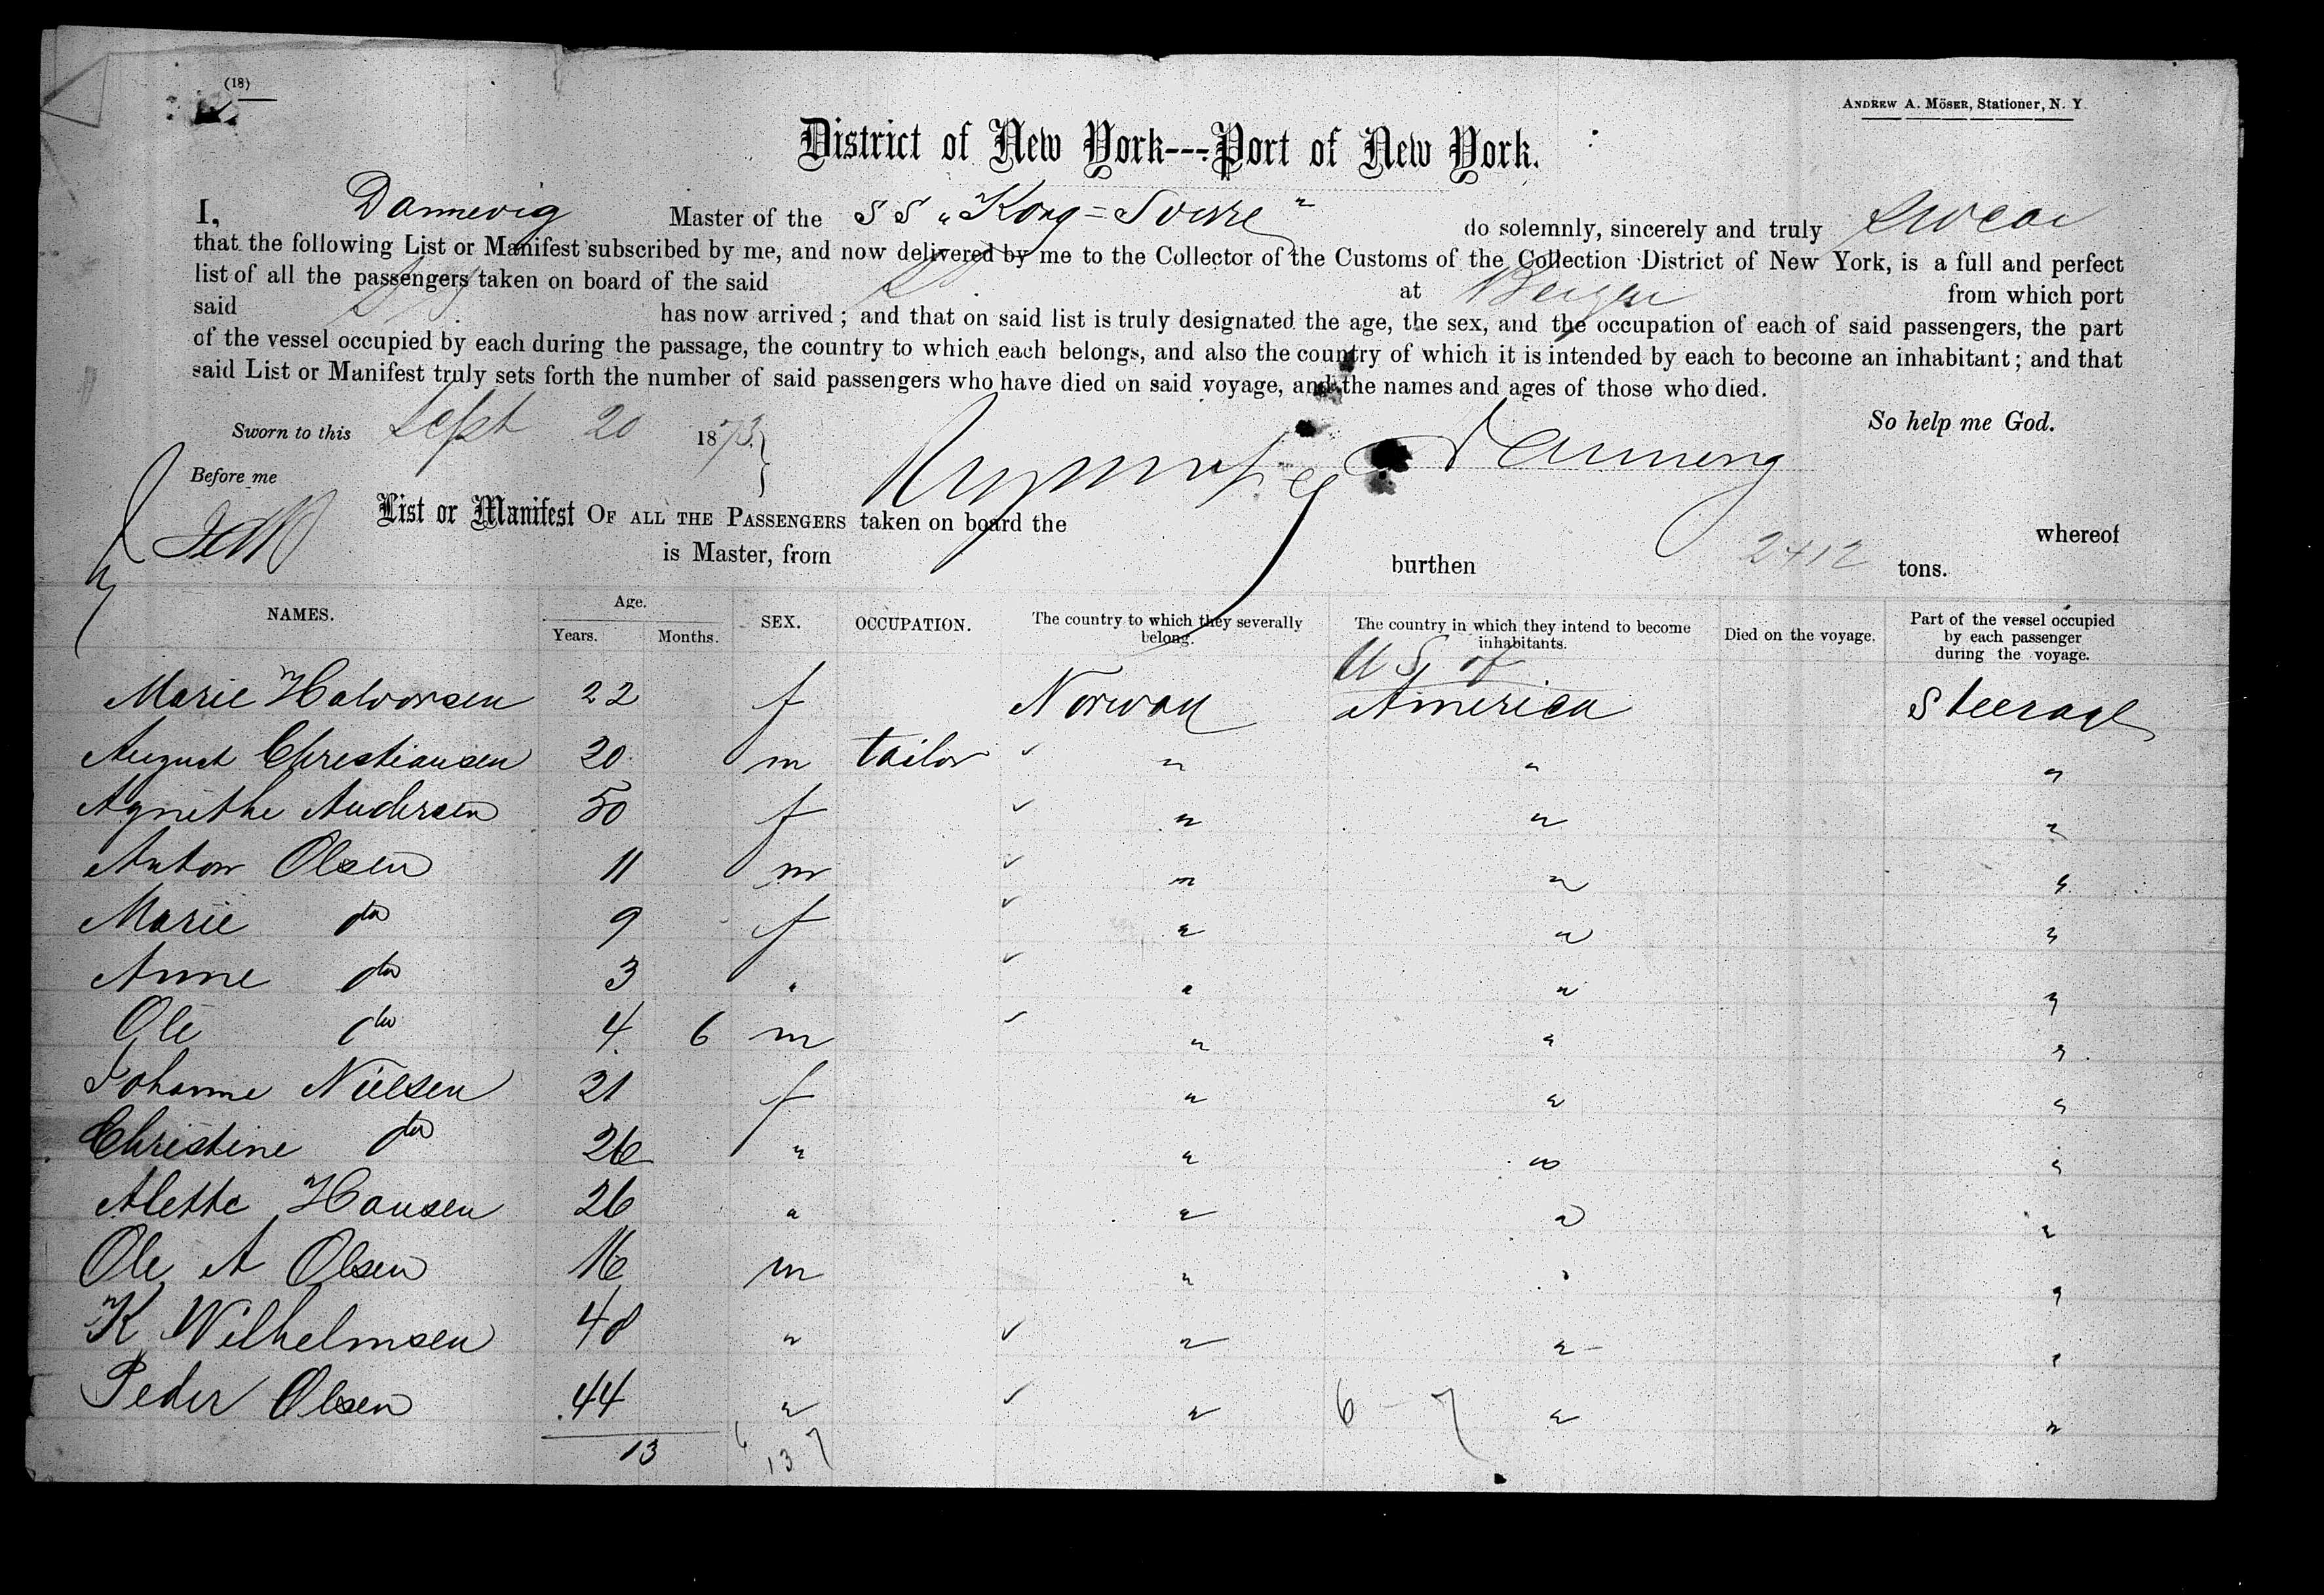 (18)
ANDREW A. MÖSER, Stationer, N. Y.
District of New York---Port of New York.
I, Dannevig Master of the SS „Kong=Sverre" do solemnly, sincerely and truly swear
that the following List or Manifest subscribed by me, and now delivered by me to the Collector of the Customs of the Collection District of New York, is a full and perfect
list of all the passengers taken on board of the said at Bergen from which port
said has now arrived; and that on said list is truly designated the age, the sex, and the occupation of each of said passengers, the part
of the vessel occupied by each during the passage, the country to which each belongs, and also the country of which it is intended by each to become an inhabitant; and that
said List or Manifest truly sets forth the number of said passengers who have died on said voyage, and the names and ages of those who died.
So help me God.
Sworn to this Sept 20 1873
Before me Dannevig
List or Manifest OF ALL THE PASSENGERS taken on board the whereof
is Master, from burthen 2412 tons.
NAMES. Age. Years. Months. SEX. OCCUPATION. The country to which they severally belong. The country in which they intend to become inhabitants. Died on the voyage. Part of the vessel occupied by each passenger during the voyage.
Marie Halvorsen 22 f Norway U S of America Steerage
August Christiansen 20 m tailor " " "
Agnethe Andersen 50 f " " "
Anton Olsen 11 m " " "
Marie do 9 f " " "
Anne do 3 " " " "
Ole do 4 6 m " " "
Johanne Nielsen 21 f " " "
Christine do 26 " " " "
Alette Hansen 26 " " " "
Ole A Olsen 16 m " " "
K Wilhelmsen 48 " " " "
Peder Olsen 44 " " 6 - 7 " "
13 6 13 7